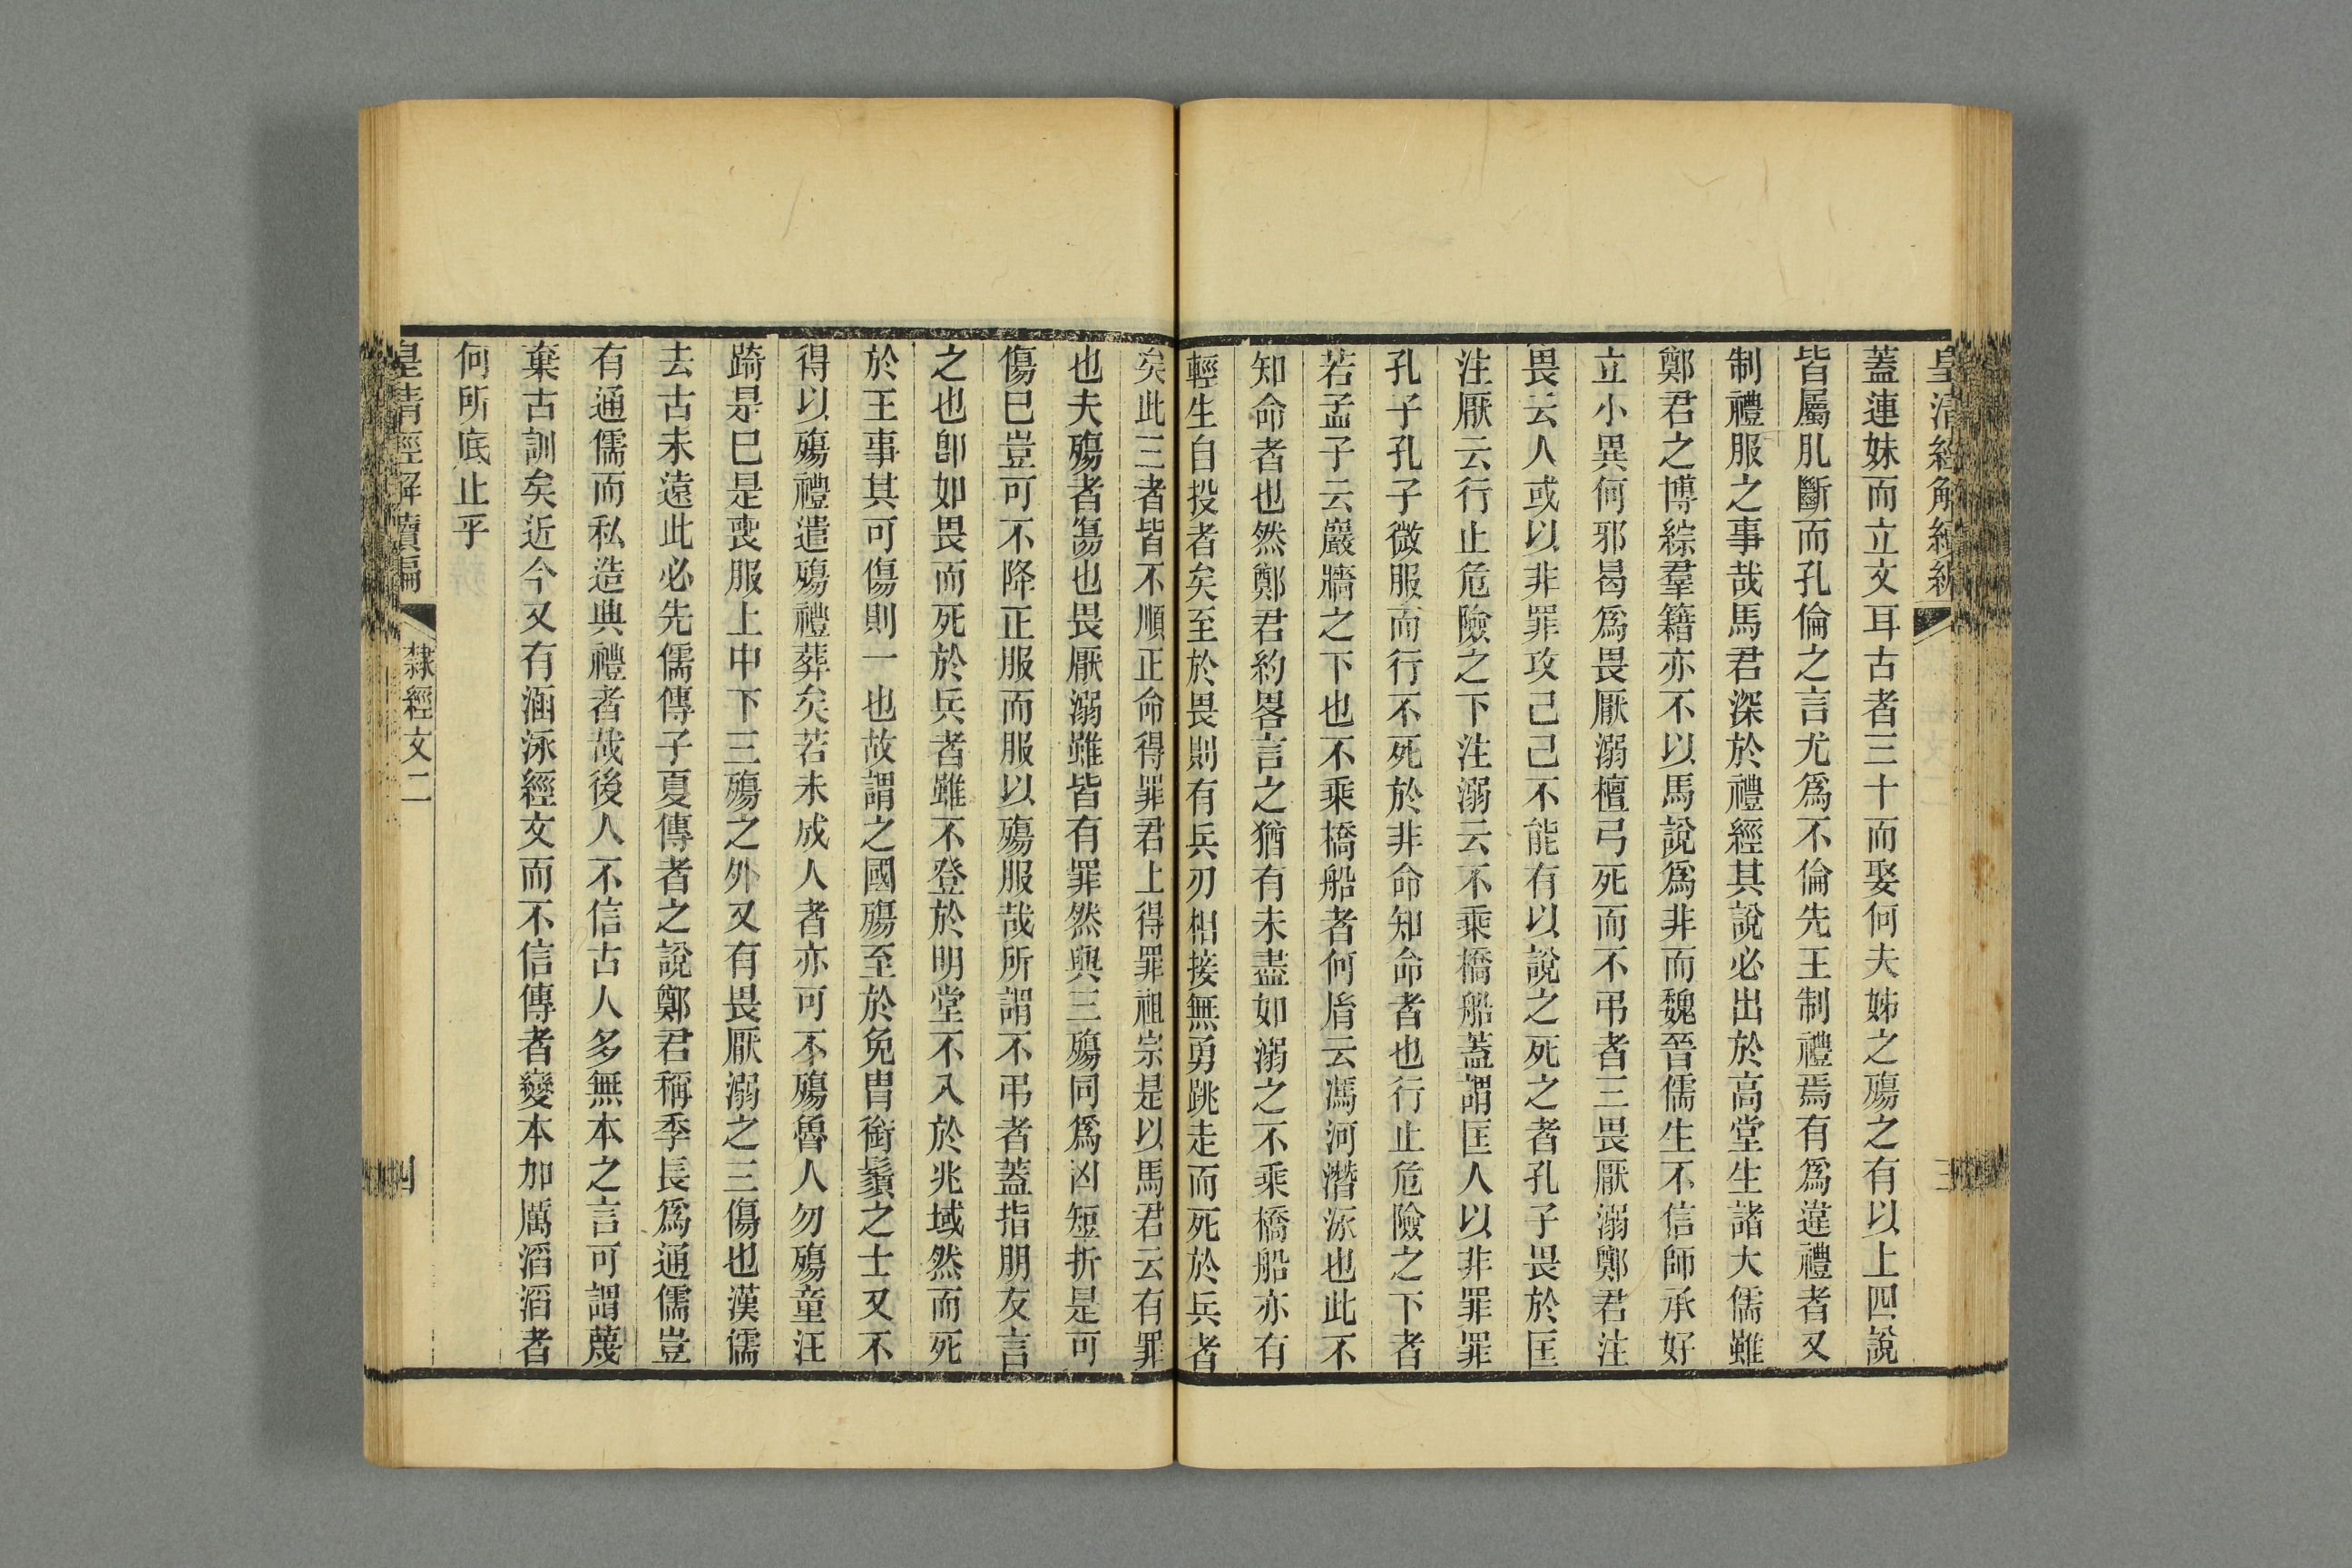 皇清經解續編
三
蓋連妹而立文耳古者三十而娶何夫姊之殤之有以上四說
皆屬肊斷而孔倫之言尤爲不倫先王制禮焉有爲違禮者又
制禮服之事哉馬君深於禮經其說必出於高堂生諸大儒雖
鄭君之博綜羣籍亦不以馬說爲非而魏晉儒生不信師承好
立小異何邪曷爲畏厭溺檀弓死而不弔者三畏厭溺鄭君注
畏云人或以非罪攻己己不能有以說之死之者孔子畏於匡
注厭云行止危險之下注溺云不乘橋船蓋謂匡人以非罪罪
孔子孔子微服而行不死於非命知命者也行止危險之下者
若孟子云巖牆之下也不乘橋船者何㫺云馮河潛泳也此不
知命者也然鄭君約畧言之猶有未盡如溺之不乘橋船亦有
輕生自投者矣至於畏則有兵刃相接無勇跳走而死於兵者
矣此三者皆不順正命得罪君上得罪祖宗是以馬君云有罪
也夫殤者傷也畏厭溺雖皆有罪然與三殤同爲凶短折是可
傷巳豈可不降正服而服以殤服哉所謂不弔者蓋指朋友言
之也卽如畏而死於兵者雖不登於明堂不入於兆域然而死
於王事其可傷則一也故謂之國殤至於免胄銜鬚之士又不
得以殤禮遣殤禮葬矣若未成人者亦可不殤魯人勿殤童汪
踦是巳是喪服上中下三殤之外又有畏厭溺之三傷也漢儒
去古未遠此必先儒傳子夏傳者之說鄭君稱季長爲通儒豈
有通儒而私造典禮者哉後人不信古人多無本之言可謂蔑
棄古訓矣近今又有涵泳經文而不信傳者變本加厲滔滔者
何所底止乎
皇清經解續編
隸經文二
四